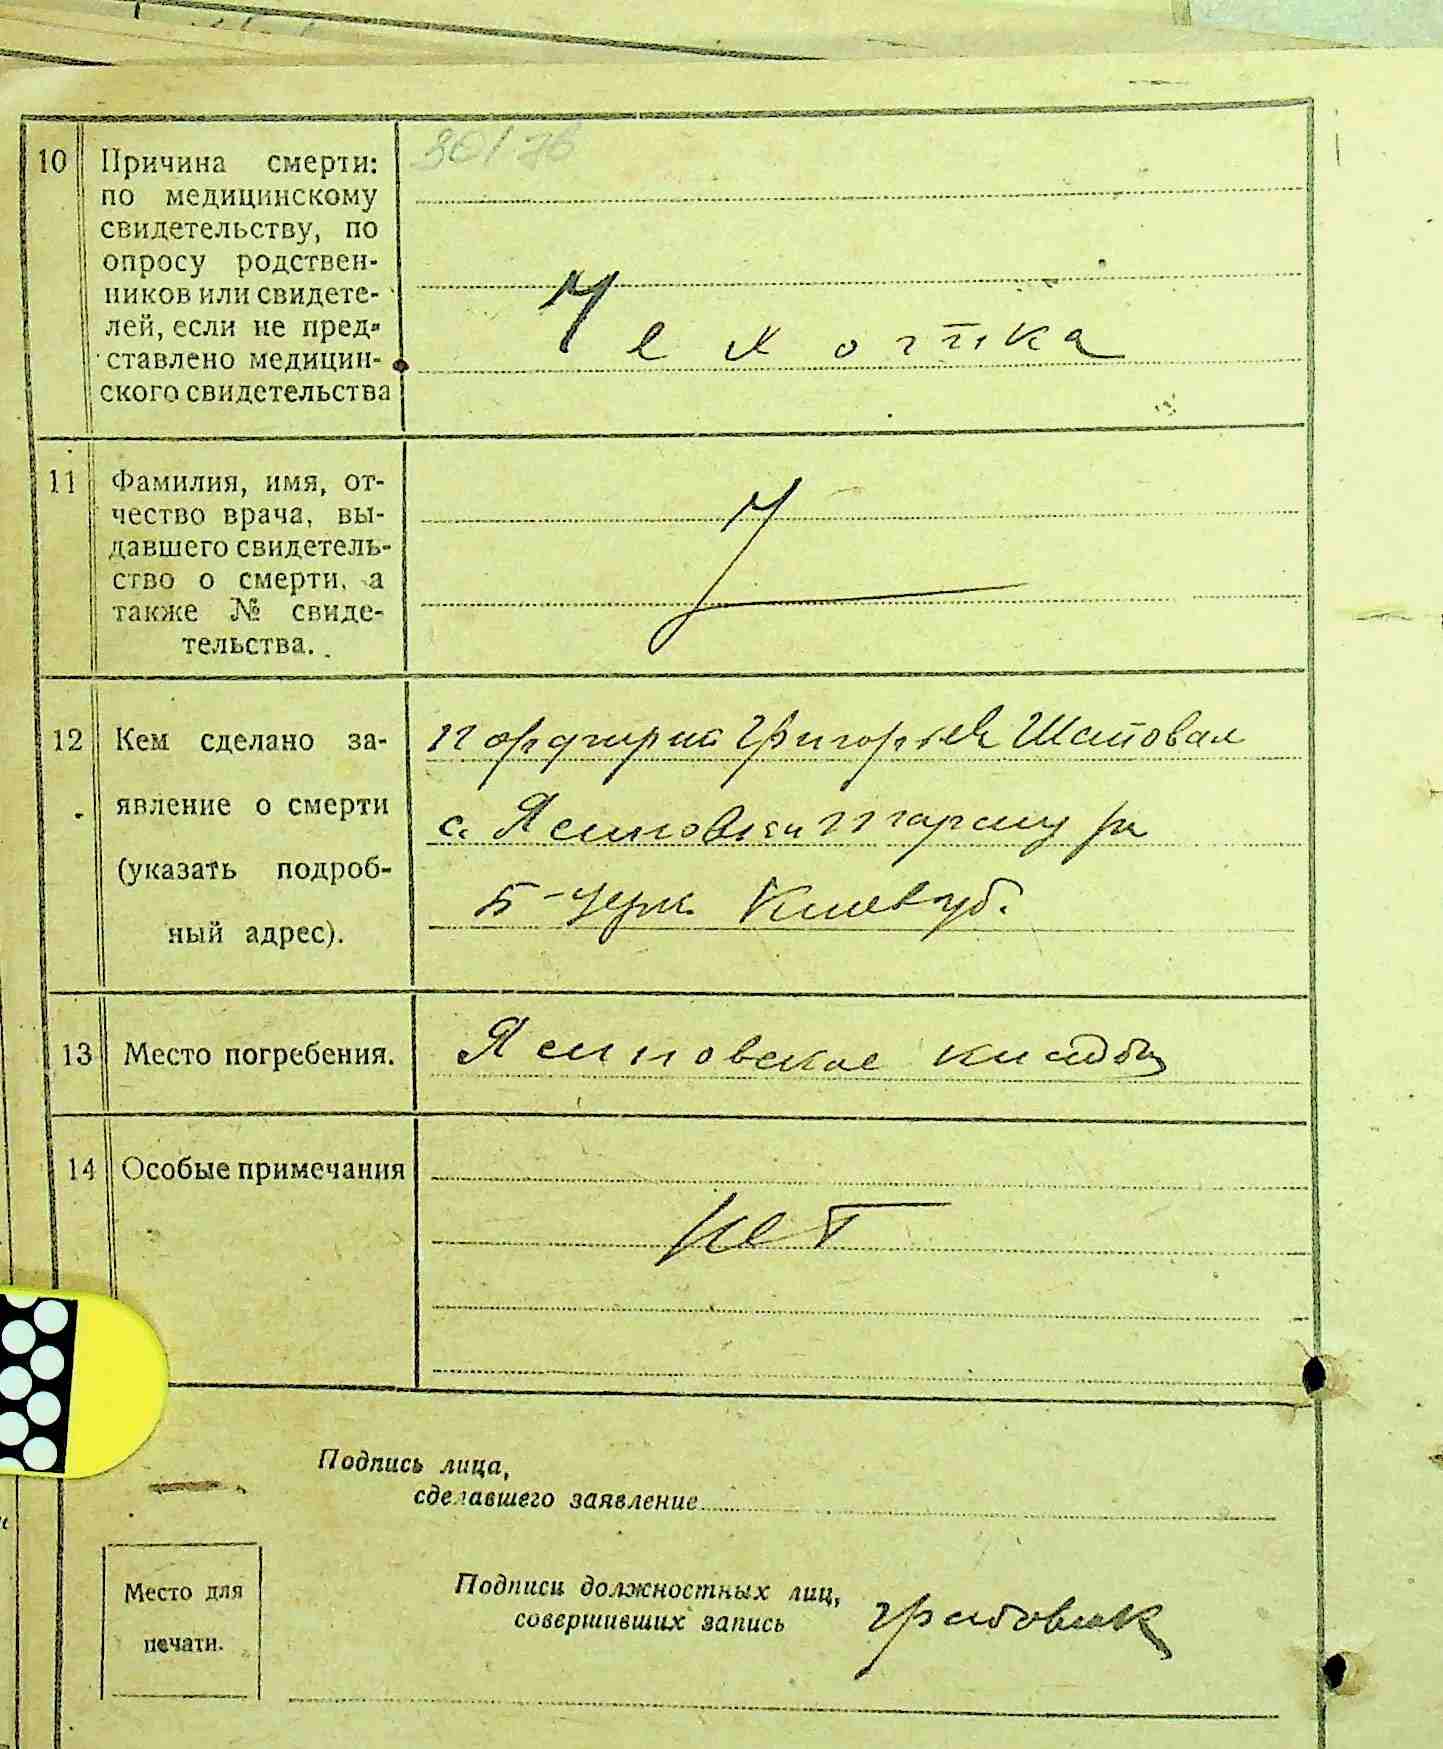 10 Причина смерти:
по медицинскому
свидетельству, по
опросу родствен-
ников или свидете-
лей, если не пред-
ставлено медицин-
ского свидетельства
Чехотка
11 Фамилия, имя, от-
чество врача, вы-
давшего свидетель-
ство о смерти, а
также № свиде-
тельства.
12 Кем сделано за-
явление о смерти
(указать подроб-
ный адрес).
Порфирий Григорьев Шаповал
с. Ясиновки
Б-Церк. Киевгуб.
13 Место погребения.
Ясиновское кладб
14 Особые примечания
нет
Подпись лица,
сделавшего заявление
Место для
печати.
Подписи должностных лиц,
совершивших запись